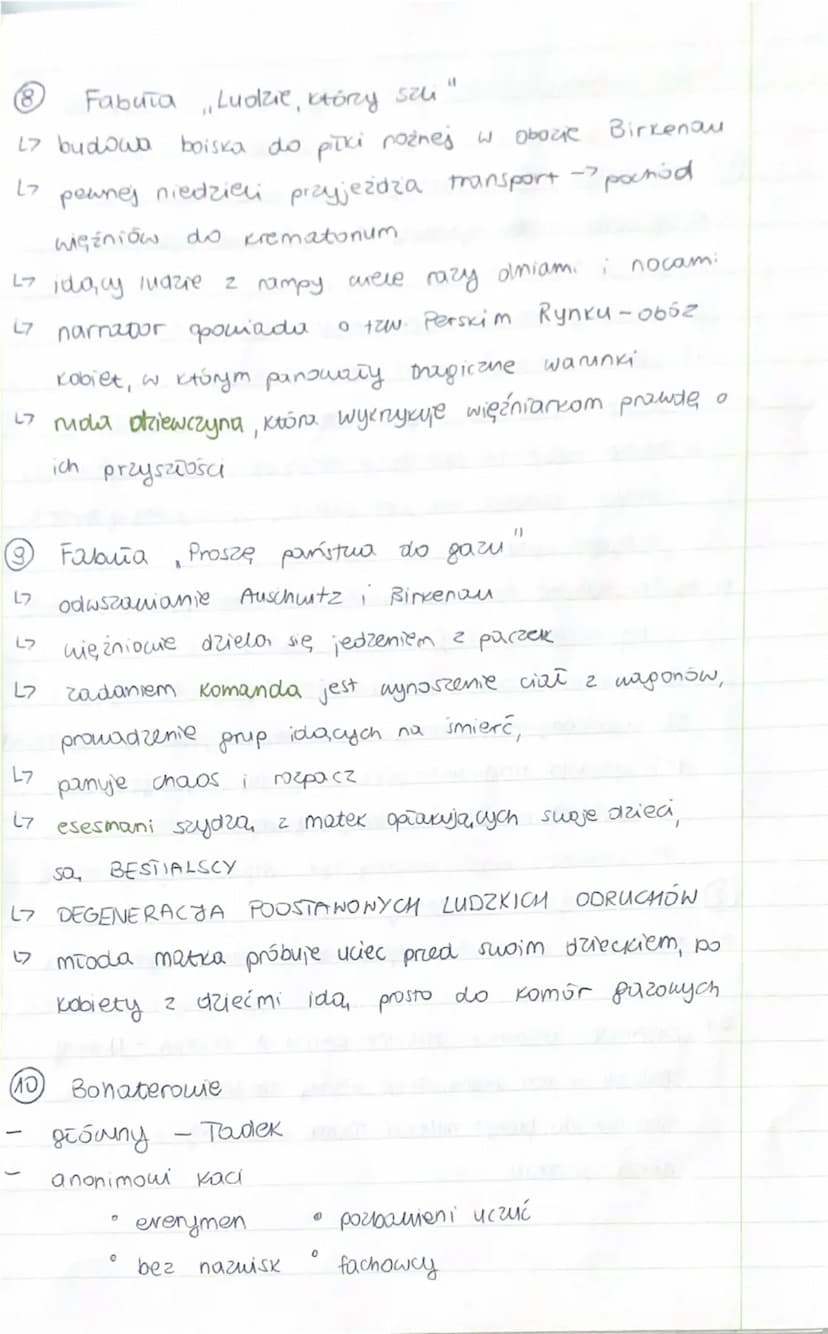 ⑧ Fabuła „Ludzie, którzy szli"
↳ budowa boiska do piłki nożnej w obozie Birkenau
↳ pewnej niedzieli przyjeżdża transport -> pochód
więźniów do krematorium
↳ idący ludzie z rampy wiele razy dniami i nocami
↳ narrator opowiada o tzw. Perskim Rynku - obóz
kobiet, w którym panowały tragiczne warunki
↳ ruda dziewczyna, która wykrykuje więźniarkom prawdę o
ich przyszłości
⑨ Fabuła „Proszę państwa do gazu"
↳ odwszawianie Auschwitz i Birkenau
↳ więźniowie dzielą się jedzeniem z paczek
↳ zadaniem komanda jest wynoszenie ciał z wagonów,
prowadzenie grup idących na śmierć,
↳ panuje chaos i rozpacz
↳ esesmani szydzą z matek opłakujących swoje dzieci,
są BESTIALSCY
↳ DEGENERACJA PODSTAWOWYCH LUDZKICH ODRUCHÓW
↳ młoda matka próbuje uciec przed swoim dzieckiem, bo
kobiety z dziećmi idą prosto do komór gazowych
⑩ Bohaterowie
- główny - Tadek
- anonimowi kaci
° everymen • pozbawieni uczuć
° bez nazwisk ° fachowcy